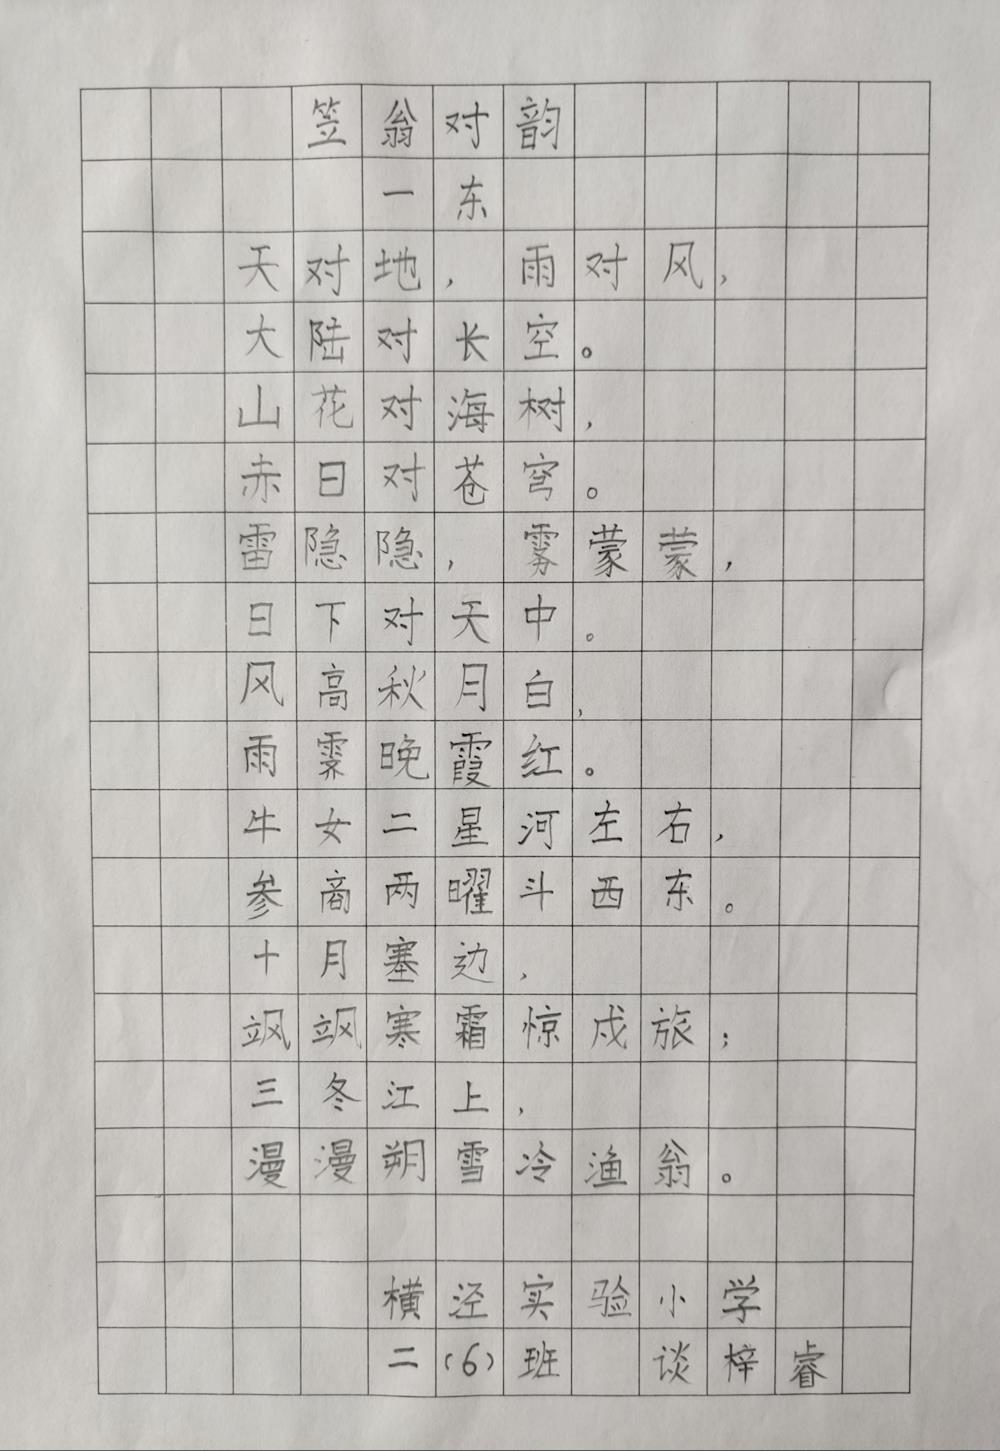 笠翁对韵
一东
天对地，雨对风，
大陆对长空。
山花对海树，
赤日对苍穹。
雷隐隐，雾蒙蒙，
日下对天中。
风高秋月白，
雨霁晚霞红。
牛女二星河左右，
参商两曜斗西东。
十月塞边，
飒飒寒霜惊戍旅；
三冬江上，
漫漫朔雪冷渔翁。
横泾实验小学
二(6)班 谈梓睿